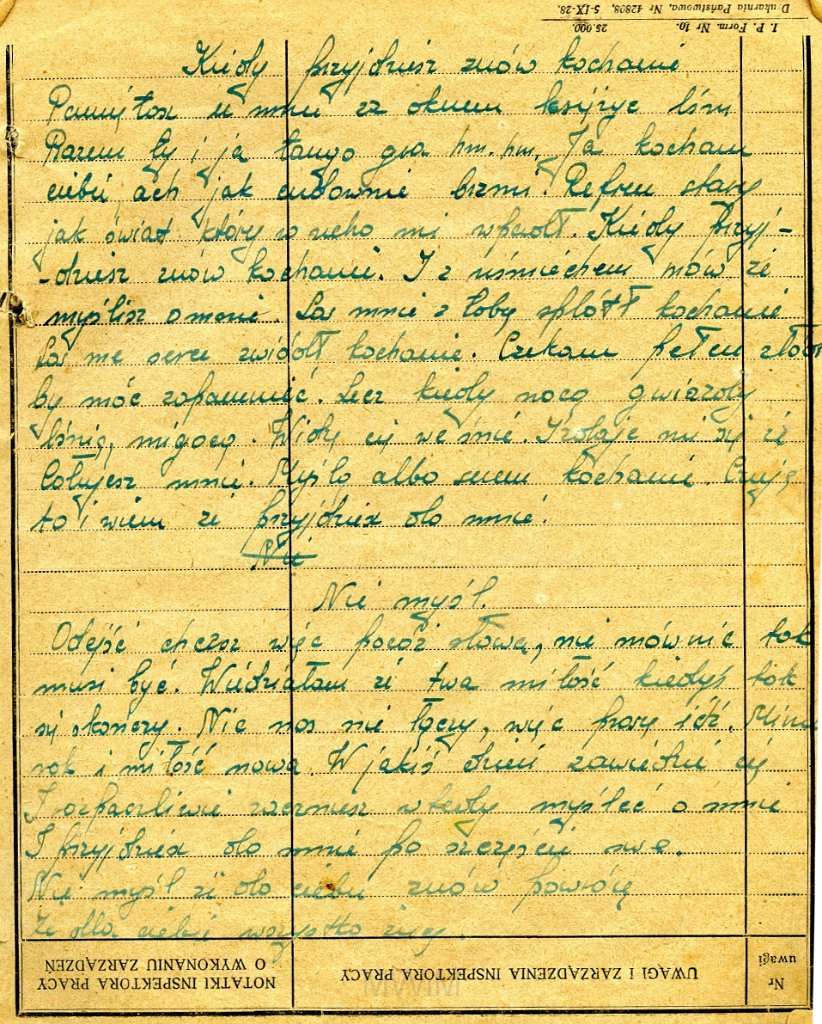 I. P. Form. Nr 10. 25.000.
Drukarnia Państwowa, Nr 42808, 5-IX-28.
Kiedy przyjdziesz znów kochanie
Pamiętasz u mnie za oknem księżyc lśni
Razem ty i ja tango gra hm. hm. Ja kocham
ciebie, ach jak cudownie brzmi. Refren stary
jak świat który w ucho mi wpadł. Kiedy przyj-
-dziesz znów kochanie. I z uśmiechem mów że
myślisz o mnie. Los mnie z tobą splótł kochanie
Los me serce zwiódł kochanie. Czekam pełen
by móc zapomnieć. Lecz kiedy nocą gwiazdy
lśnią, migocą. Widzę cię we śnie. I zdaje mi się że
Całujesz mnie. Myślą albo snem kochanie. Czuję
to i wiem że przyjdziesz do mnie.
Nie
Nie myśl.
Odejść chcesz więc pocóż słowa, nie mów nic tak
musi być. Wiedziałam że twa miłość kiedyś tak
się skończy. Nic nas nie łączy, więc proszę idź. Minie
rok i miłość nowa. W jakiś dzień zawiedzie cię
I rozpaczliwie zaczniesz wtedy myśleć o mnie
I przyjdziesz do mnie po szczęście swe.
Nie myśl że do ciebie znów powrócę
Że dla ciebie wszystko
NOTATKI INSPEKTORA PRACY O WYKONANIU ZARZĄDZEŃ
UWAGI I ZARZĄDZENIA INSPEKTORA PRACY
Nr uwagi
MWM